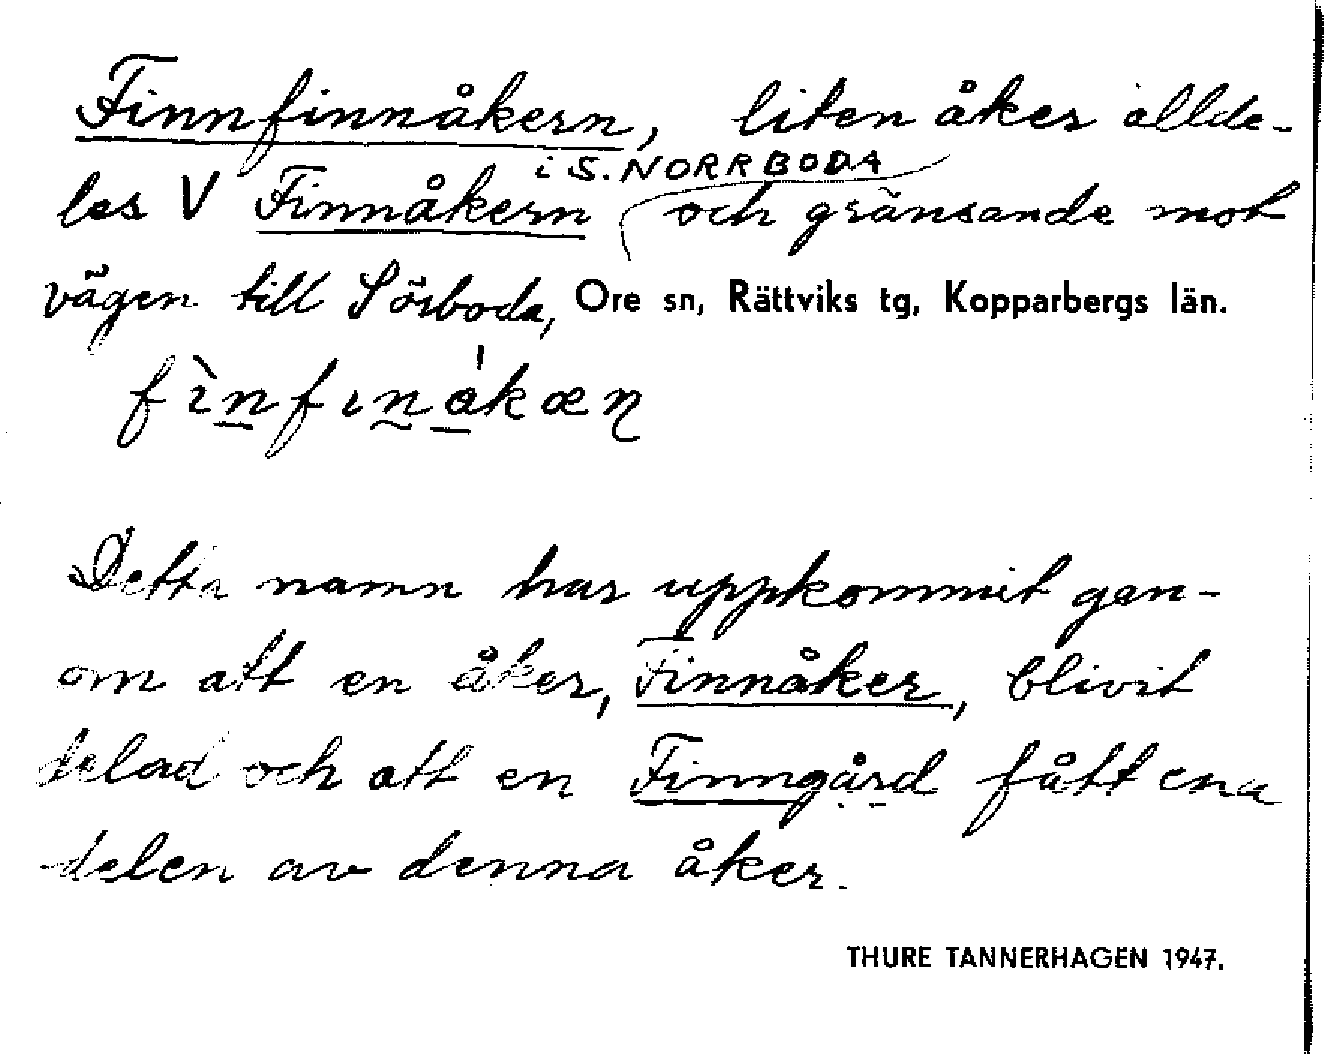 Finnfinnåkern, liten åker allde-
i S. NORRBODA
les V Finnåkern och gränsande mot
vägen till Sörboda, Ore sn, Rättviks tg, Kopparbergs län.
fìnfınåkæn
Detta namn har uppkommit gen-
om att en åker, Finnåker, blivit
delad och att en Finngård fått ena
delen av denna åker.
THURE TANNERHAGEN 1947.